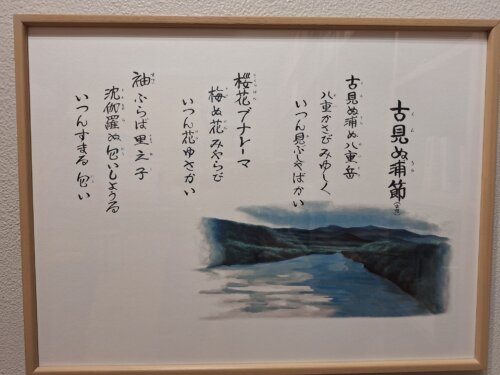 古見ぬ浦節
古見ぬ浦ぬ八重岳
八重かさび みゆしく
いつん見ぶしゃばかい
桜花ブナレーマ
梅ぬ花 みやらび
いつん花ゆさかい
袖ふらば里之子
沈伽羅ぬ匂いしょうる
いつんすまる匂い